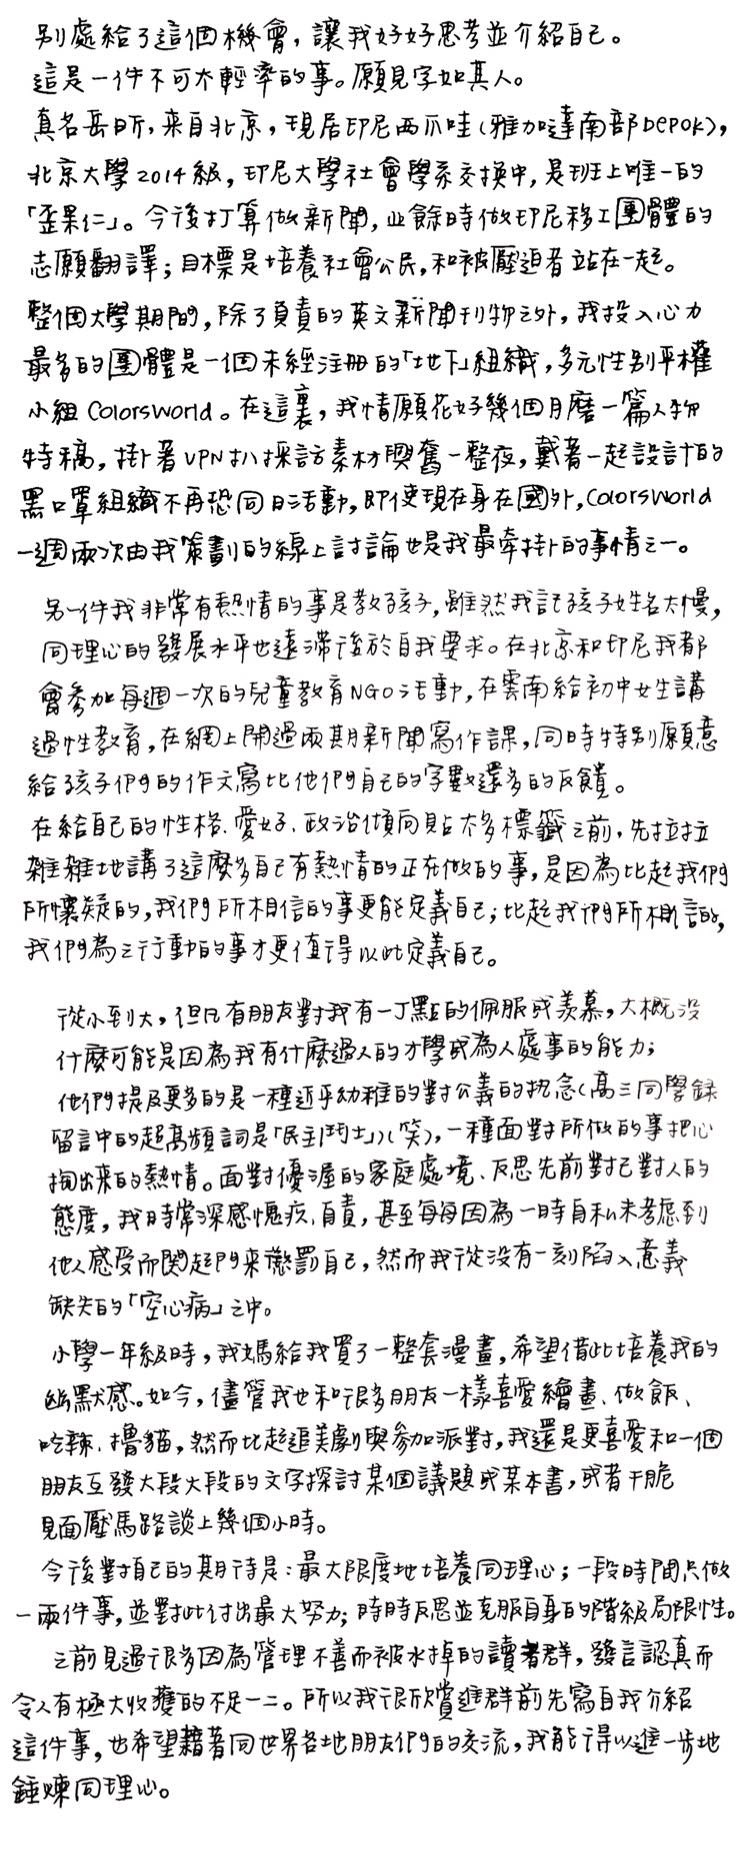 別處給了這個機會，讓我好好思考並介紹自己。
這是一件不可太輕率的事。願見字如其人。
真名岳昕，來自北京，現居印尼西爪哇（雅加達南部Depok），
北京大學2014級，印尼大學社會學系交換中，是班上唯一的
「歪果仁」。今後打算做新聞，业餘時做印尼移工團體的
志願翻譯；目標是培養社會公民，和被壓迫者站在一起。
整個大學期間，除了負責的英文新聞刊物之外，我投入心力
最多的團體是一個未經注冊的「地下」組織，多元性別平權
小組ColorsWorld。在這裏，我情願花好幾個月磨一篇人物
特稿，掛著VPN扒採訪素材興奮一整夜，戴著一起設計的
黑口罩組織不再恐同日活動，即使現在身在國外，ColorsWorld
一週兩次由我策劃的線上討論也是我最牽掛的事情之一。
另一件我非常有熱情的事是教孩子，雖然我記孩子姓名太慢，
同理心的發展水平也遠滯後於自我要求。在北京和印尼我都
會參加每週一次的兒童教育NGO活動，在雲南給初中女生講
過性教育，在網上開過兩期新聞寫作課，同時特別願意
給孩子們的作文寫比他們自己的字數還多的反饋。
在給自己的性格、愛好、政治傾向貼太多標籤之前，先拉拉
雜雜地講了這麼多自己有熱情的正在做的事，是因為比起我們
所懷疑的，我們所相信的事更能定義自己；比起我們所相信的，
我們為之行動的事才更值得以此定義自己。
從小到大，但凡有朋友對我有一丁點的佩服或羨慕，大概沒
什麼可能是因為我有什麼過人的才學或為人處事的能力；
他們提及更多的是一種近乎幼稚的對公義的執念（高三同學錄
留言中的超高頻詞是「民主鬥士」）（笑），一種面對所做的事把心
掏出來的熱情。面對優渥的家庭處境、反思先前對己對人的
態度，我時常深感愧疚、自責，甚至每每因為一時自私未考慮到
他人感受而關起門來懲罰自己，然而我從沒有一刻陷入意義
缺失的「空心病」之中。
小學一年級時，我媽給我買了一整套漫畫，希望借此培養我的
幽默感。如今，儘管我也和很多朋友一樣喜愛繪畫、做飯、
吃辣、擼貓，然而比起追美劇與參加派對，我還是更喜愛和一個
朋友互發大段大段的文字探討某個議題或某本書，或者干脆
見面壓馬路談上幾個小時。
今後對自己的期待是：最大限度地培養同理心；一段時間只做
一兩件事，並對此付出最大努力；時時反思並克服自身的階級局限性。
之前見過很多因為管理不善而被水掉的讀者群，發言認真而
令人有極大收獲的不足一二。所以我很欣賞進群前先寫自我介紹
這件事，也希望藉著同世界各地朋友們的交流，我能得以進一步地
錘煉同理心。